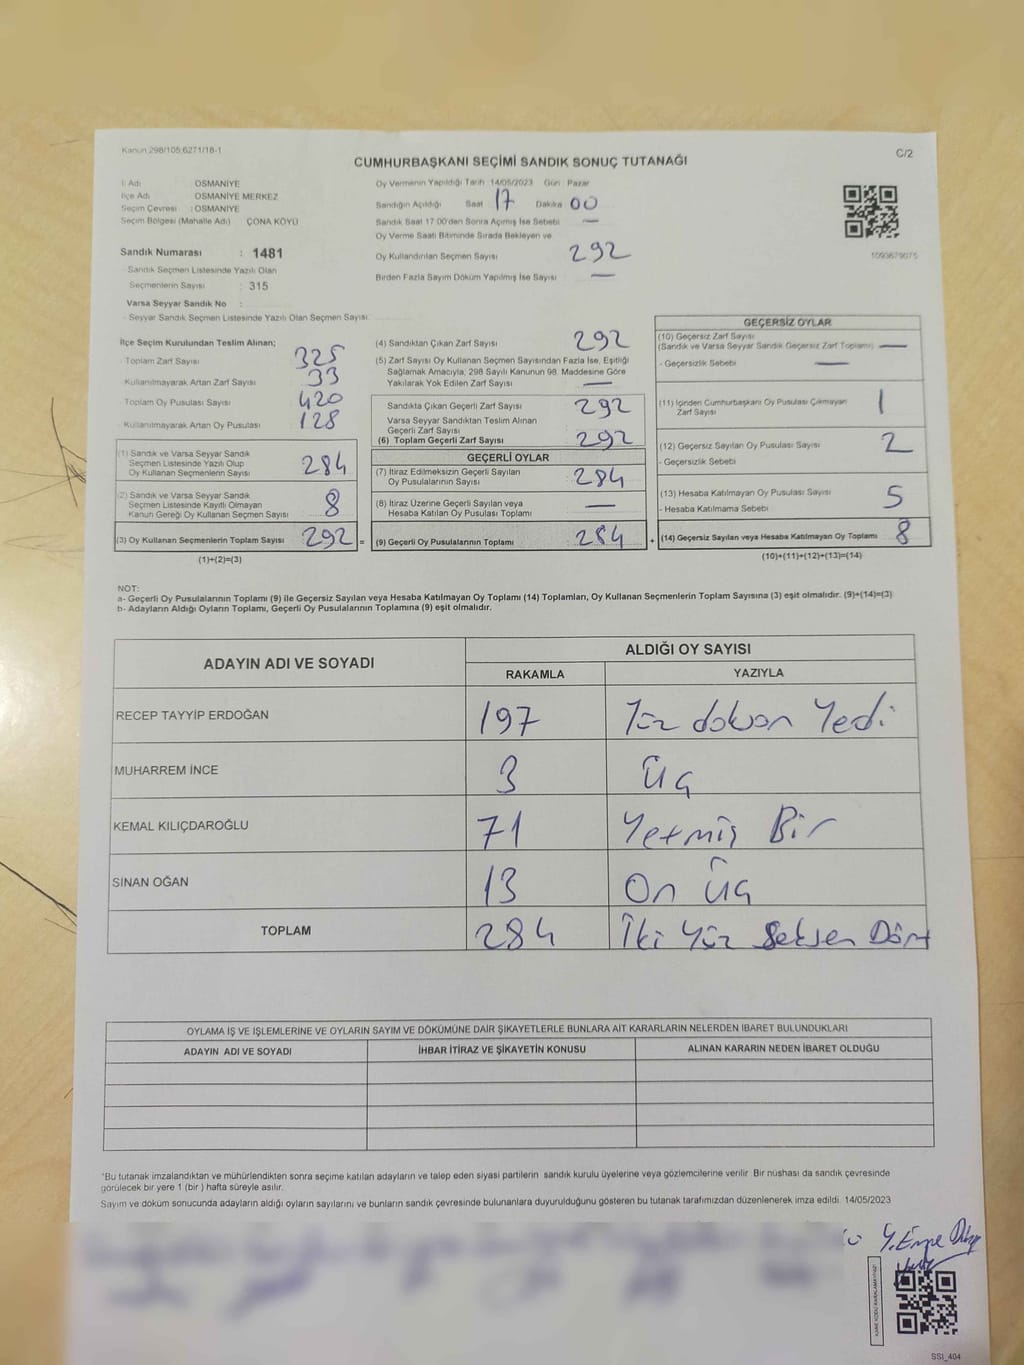 Kanun 298/105;6271/18-1
CUMHURBAŞKANI SEÇİMİ SANDIK SONUÇ TUTANAĞI
C/2
İl Adı OSMANİYE
İlçe Adı OSMANİYE MERKEZ
Seçim Çevresi : OSMANİYE
Seçim Bölgesi (Mahalle Adı) ÇONA KÖYÜ
Sandık Numarası : 1481
Sandık Seçmen Listesinde Yazılı Olan
Seçmenlerin Sayısı : 315
Varsa Seyyar Sandık No :
- Seyyar Sandık Seçmen Listesinde Yazılı Olan Seçmen Sayısı:
Oy Vermenin Yapıldığı Tarih 14/05/2023 Gün Pazar
Sandığın Açıldığı Saat 17 Dakika 00
Sandık Saat 17:00'den Sonra Açılmış İse Sebebi —
Oy Verme Saati Bitiminde Sırada Bekleyen ve
Oy Kullandırılan Seçmen Sayısı 292
Birden Fazla Sayım Döküm Yapılmış İse Sayısı —
1093679075
İlçe Seçim Kurulundan Teslim Alınan;
Toplam Zarf Sayısı 325
Kullanılmayarak Artan Zarf Sayısı 33
Toplam Oy Pusulası Sayısı 420
Kullanılmayarak Artan Oy Pusulası 128
(1) Sandık ve Varsa Seyyar Sandık
Seçmen Listesinde Yazılı Olup
Oy Kullanan Seçmenlerin Sayısı 284
(2) Sandık ve Varsa Seyyar Sandık
Seçmen Listesinde Kayıtlı Olmayan
Kanun Gereği Oy Kullanan Seçmen Sayısı 8
(3) Oy Kullanan Seçmenlerin Toplam Sayısı 292 =
(1)+(2)=(3)
(4) Sandıktan Çıkan Zarf Sayısı 292
(5) Zarf Sayısı Oy Kullanan Seçmen Sayısından Fazla İse, Eşitliği
Sağlamak Amacıyla, 298 Sayılı Kanunun 98. Maddesine Göre
Yakılarak Yok Edilen Zarf Sayısı —
Sandıkta Çıkan Geçerli Zarf Sayısı 292
Varsa Seyyar Sandıktan Teslim Alınan
Geçerli Zarf Sayısı
(6) Toplam Geçerli Zarf Sayısı 292
GEÇERLİ OYLAR
(7) İtiraz Edilmeksizin Geçerli Sayılan
Oy Pusulalarının Sayısı 284
(8) İtiraz Üzerine Geçerli Sayılan veya
Hesaba Katılan Oy Pusulası Toplamı —
(9) Geçerli Oy Pusulalarının Toplamı 284 +
GEÇERSİZ OYLAR
(10) Geçersiz Zarf Sayısı
(Sandık ve Varsa Seyyar Sandık Geçersiz Zarf Toplamı) —
- Geçersizlik Sebebi —
(11) İçinden Cumhurbaşkanı Oy Pusulası Çıkmayan
Zarf Sayısı 1
(12) Geçersiz Sayılan Oy Pusulası Sayısı 2
- Geçersizlik Sebebi
(13) Hesaba Katılmayan Oy Pusulası Sayısı 5
- Hesaba Katılmama Sebebi
(14) Geçersiz Sayılan veya Hesaba Katılmayan Oy Toplamı 8
(10)+(11)+(12)+(13)=(14)
NOT:
a- Geçerli Oy Pusulalarının Toplamı (9) ile Geçersiz Sayılan veya Hesaba Katılmayan Oy Toplamı (14) Toplamları, Oy Kullanan Seçmenlerin Toplam Sayısına (3) eşit olmalıdır. (9)+(14)=(3)
b- Adayların Aldığı Oyların Toplamı, Geçerli Oy Pusulalarının Toplamına (9) eşit olmalıdır.
ADAYIN ADI VE SOYADI
ALDIĞI OY SAYISI
RAKAMLA YAZIYLA
RECEP TAYYİP ERDOĞAN 197 Yüz doksan Yedi
MUHARREM İNCE 3 Üç
KEMAL KILIÇDAROĞLU 71 Yetmiş Bir
SİNAN OĞAN 13 On Üç
TOPLAM 284 İki Yüz Seksen Dört
OYLAMA İŞ VE İŞLEMLERİNE VE OYLARIN SAYIM VE DÖKÜMÜNE DAİR ŞİKAYETLERLE BUNLARA AİT KARARLARIN NELERDEN İBARET BULUNDUKLARI
ADAYIN ADI VE SOYADI İHBAR İTİRAZ VE ŞİKAYETİN KONUSU ALINAN KARARIN NEDEN İBARET OLDUĞU
*Bu tutanak imzalandıktan ve mühürlendikten sonra seçime katılan adayların ve talep eden siyasi partilerin sandık kurulu üyelerine veya gözlemcilerine verilir. Bir nüshası da sandık çevresinde
görülecek bir yere 1 (bir ) hafta süreyle asılır.
Sayım ve döküm sonucunda adayların aldığı oyların sayılarını ve bunların sandık çevresinde bulunanlara duyurulduğunu gösteren bu tutanak tarafımızdan düzenlenerek imza edildi. 14/05/2023
SSI_404